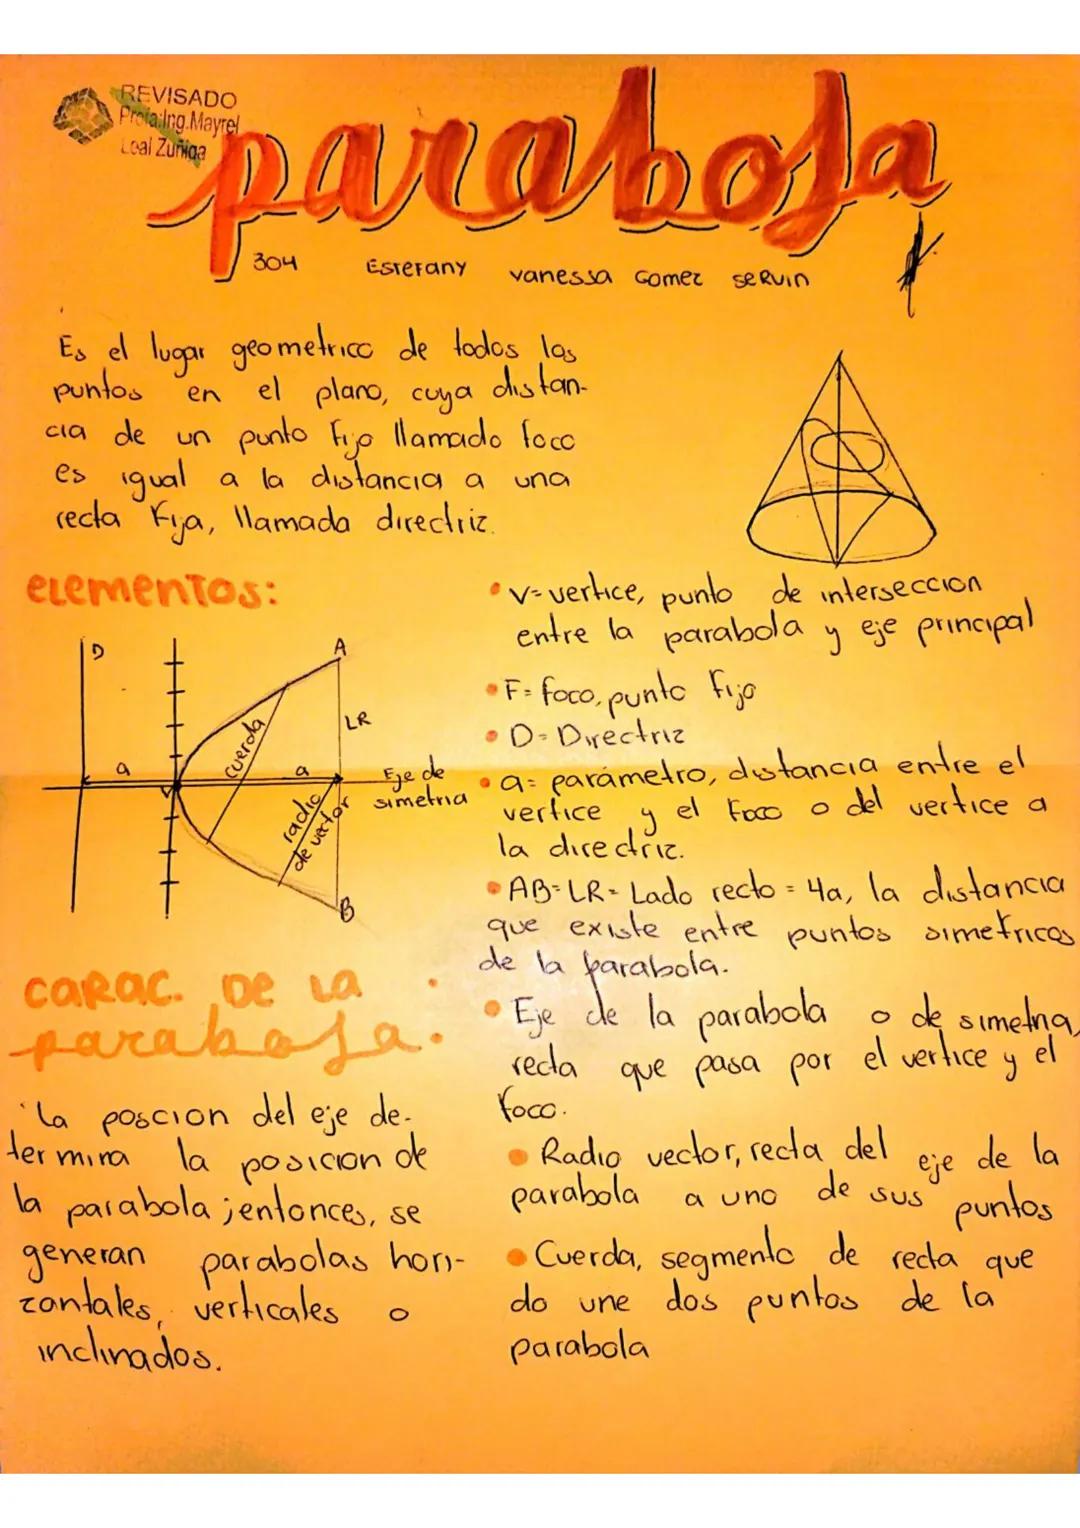 REVISADO
Profa:Ing.Mayrel
Leal Zuñiga
parabola
304 Estefany vanessa Gomez servin
Es el lugar geometrico de todos los
puntos en el plano, cuya distan-
cia de un punto fijo llamado foco
es igual a la distancia a una
recta fija, llamada directriz.
elementos:
D
A
LR
cuerda
a
a
V
Eje de
simetria
radio
de vector
B
carac. De la
parabola:
La poscion del eje de-
termina la posicion de
la parabola; entonces, se
generan parabolas hori-
zontales, verticales o
inclinados.
• V= vertice, punto de interseccion
entre la parabola y eje principal
• F= foco, punto fijo
• D= Directriz
• a= parámetro, distancia entre el
vertice y el foco o del vertice a
la directriz.
• AB=LR= Lado recto = 4a, la distancia
que existe entre puntos simetricos
de la parabola.
• Eje de la parabola o de simetria,
recta que pasa por el vertice y el
foco.
• Radio vector, recta del eje de la
parabola a uno de sus puntos
• Cuerda, segmento de recta que
do une dos puntos de la
parabola